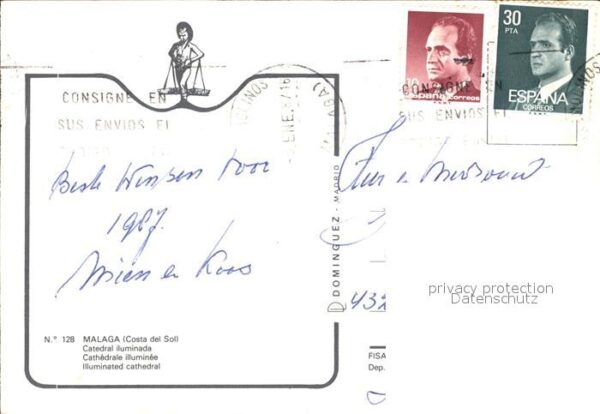 30
PTA
ESPAÑA
CORREOS
10
España correos
CONSIGNE EN
SUS ENVIOS EL
CONSIGNE EN
SUS ENVIOS
ENE. 87 16
Beste Wensen voor
1987.
Mien en Koos
Fam
432
DOMINGUEZ - MADRID
privacy protection
Datenschutz
N.° 128 MALAGA (Costa del Sol)
Catedral iluminada
Cathédrale illuminée
Illuminated cathedral
FISA
Dep.